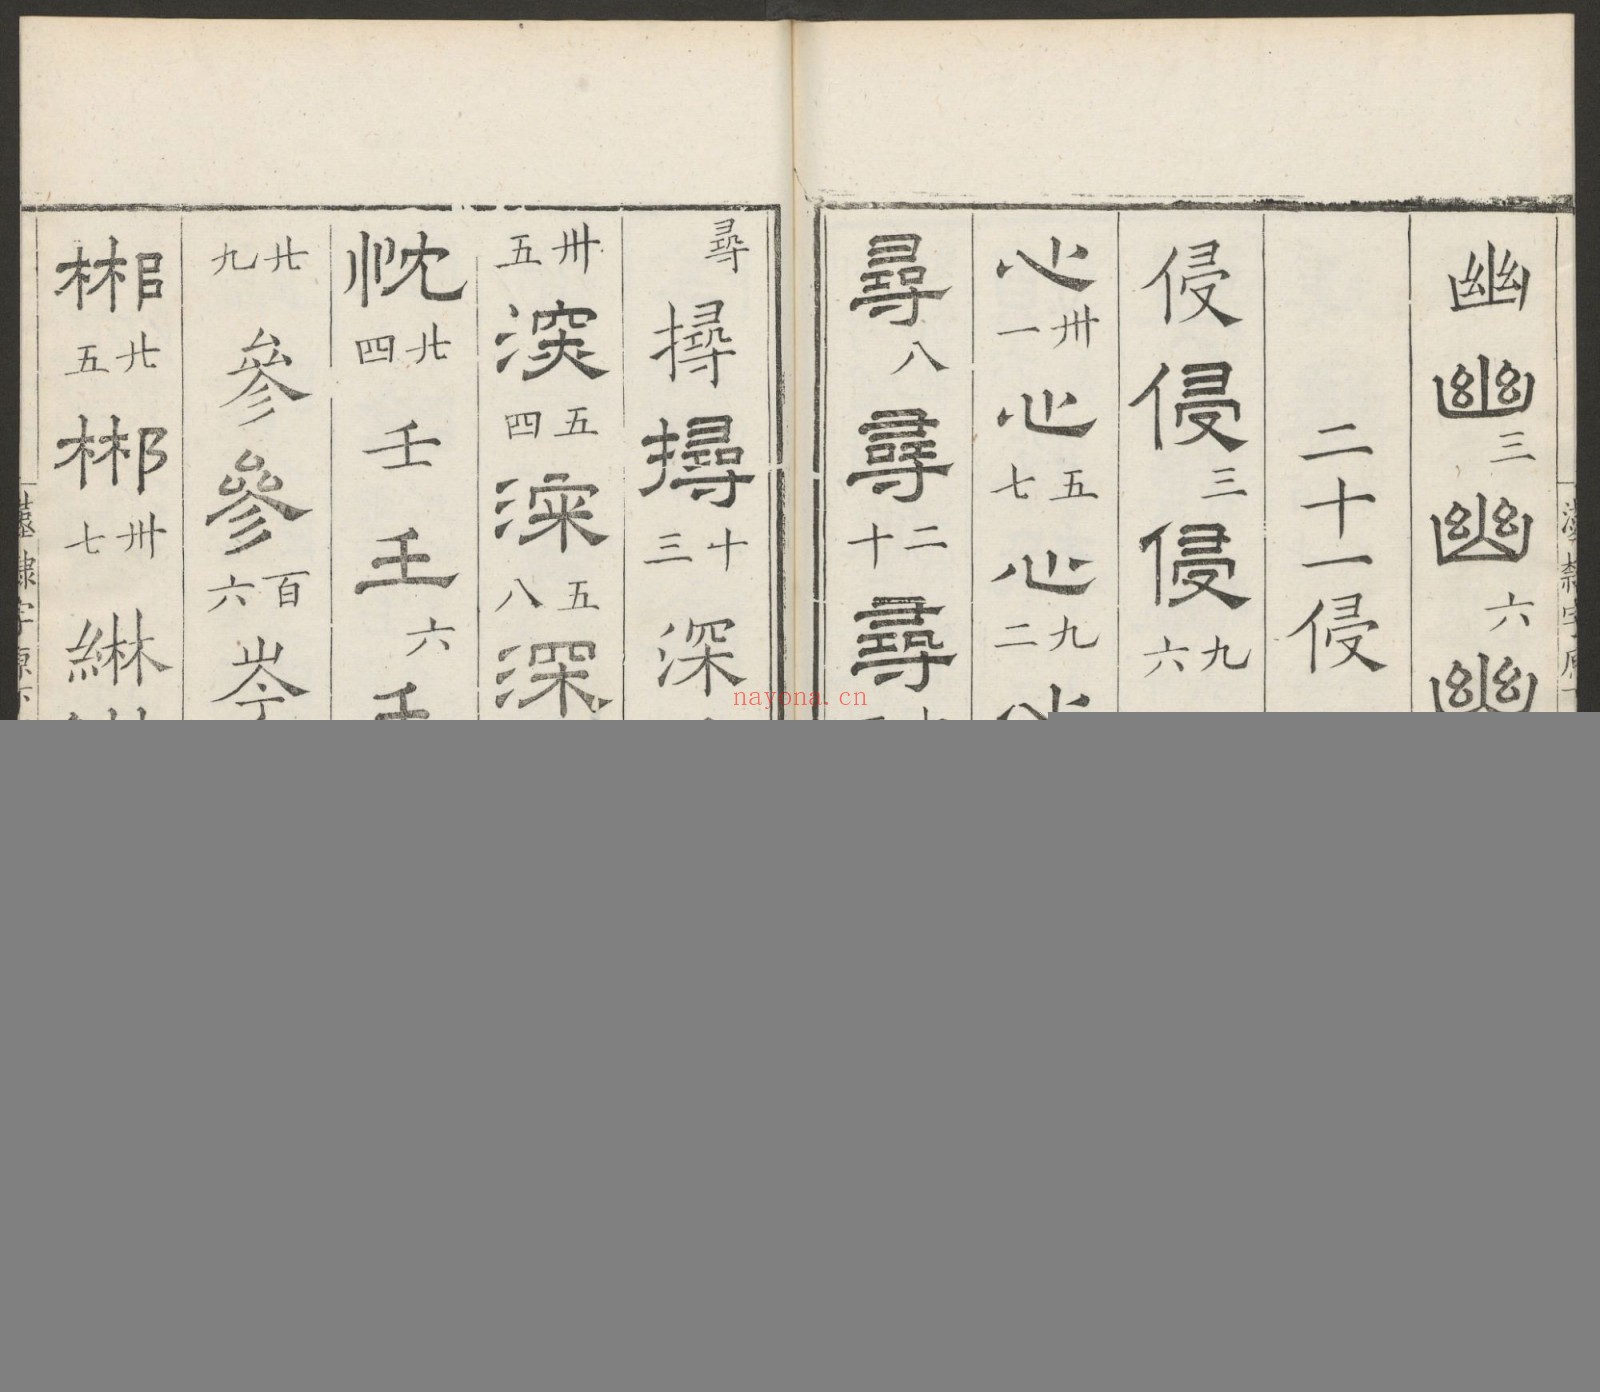 幽幽三幽六幽
二十一侵
侵侵三侵九六
心卅一心五七心九二心
尋八尋二十尋
尋
撏撏十三深
卅五深五四深五八深
忱廿四壬壬六壬
廿九參參百六岑
郴廿五郴卅七綝
nayona.cn